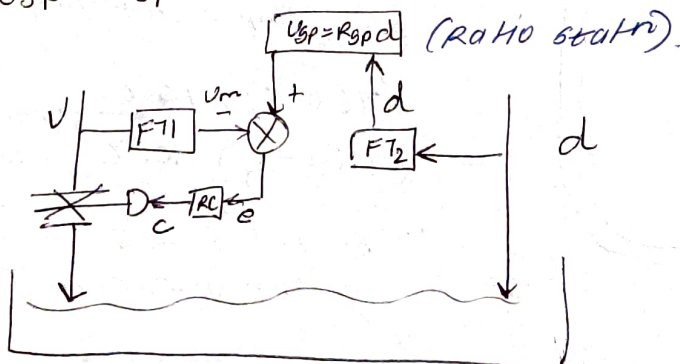 Usp=Rspd (Ratio statn).
U FT1 Um - + d FT2 d
C RC e